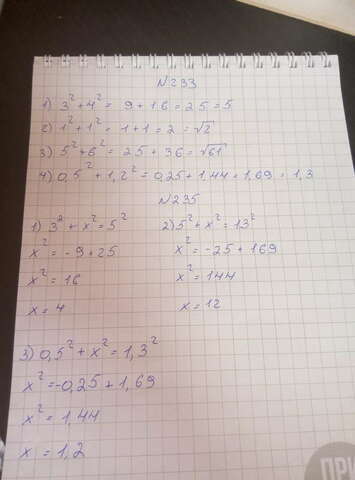 N233
1) 3² + 4² = 9 + 16 = 25 = 5
2) 1² + 1² = 1 + 1 = 2 = √2
3) 5² + 6² = 25 + 36 = √61
4) 0,5² + 1,2² = 0,25 + 1,44 = 1,69 = 1,3
N235
1) 3² + x² = 5²
2) 5² + x² = 13²
x² = -9 + 25
x² = -25 + 169
x² = 16
x² = 144
x = 4
x = 12
3) 0,5² + x² = 1,3²
x² = -0,25 + 1,69
x² = 1,44
x = 1,2
ПРИ